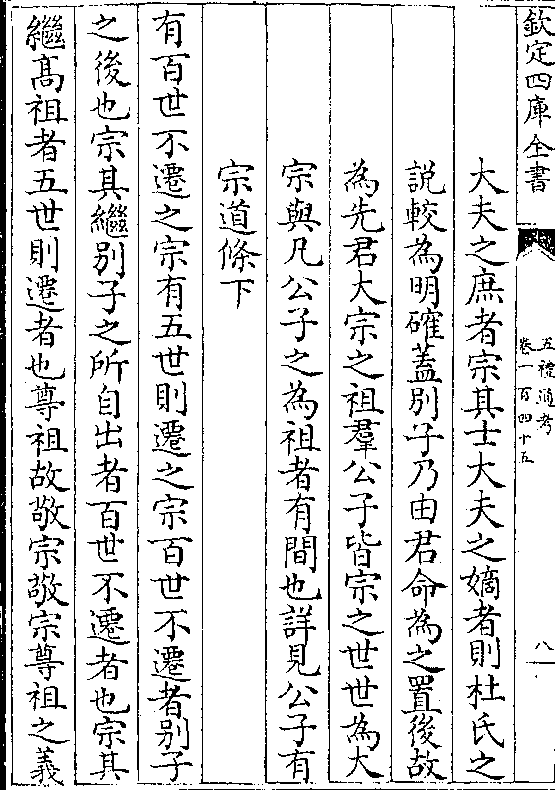 欽定四庫全書
五禮通考
卷一百四十五
八
大夫之庶者宗其士大夫之嫡者則杜氏之
説較為明確蓋別子乃由君命為之置後故
為先君大宗之祖羣公子皆宗之世世為大
宗與凡公子之為祖者有間也詳見公子有
宗道條下
有百世不遷之宗有五世則遷之宗百世不遷者别子
之後也宗其繼别子之所自出者百世不遷者也宗其
繼髙祖者五世則遷者也尊祖故敬宗敬宗尊祖之義